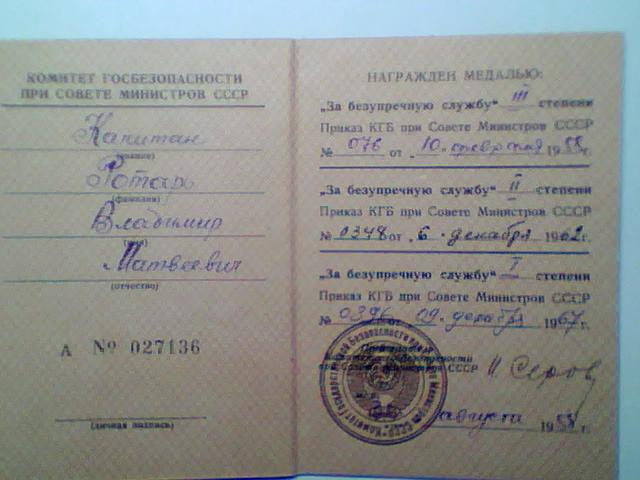 КОМИТЕТ ГОСБЕЗОПАСНОСТИ
ПРИ СОВЕТЕ МИНИСТРОВ СССР
Капитан
(звание)
Ротарь
(фамилия)
Владимир
(имя)
Матвеевич
(отчество)
А № 027136
(личная подпись)
НАГРАЖДЕН МЕДАЛЬЮ:
„За безупречную службу“ III степени
Приказ КГБ при Совете Министров СССР
№ 076 от „10„ февраля 1958г.
„За безупречную службу“ II степени
Приказ КГБ при Совете Министров СССР
№ 0348 от „6„ декабря 1962г.
„За безупречную службу“ I степени
Приказ КГБ при Совете Министров СССР
№ 0396 от 09 декабря 1967г.
Председатель
Комитета госбезопасности
при Совете министров СССР И. Серов
августа 1958г.